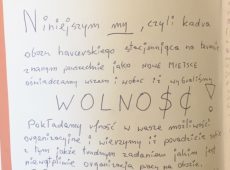 Niniejszym my, czyli kadra
obozu harcerskiego stacjonująca na terenie
znanym powszechnie jako NOWE MIEJSCE
oświadczamy wszem i wobec iż wybraliśmy
WOLNO$¢!
Pokładamy ufność w wasze możliwości
organizacyjne i wierzymy iż poradzicie sobie
z jakże trudnym zadaniem jakim jest
niewątpliwie organizacja pracy na obozie.